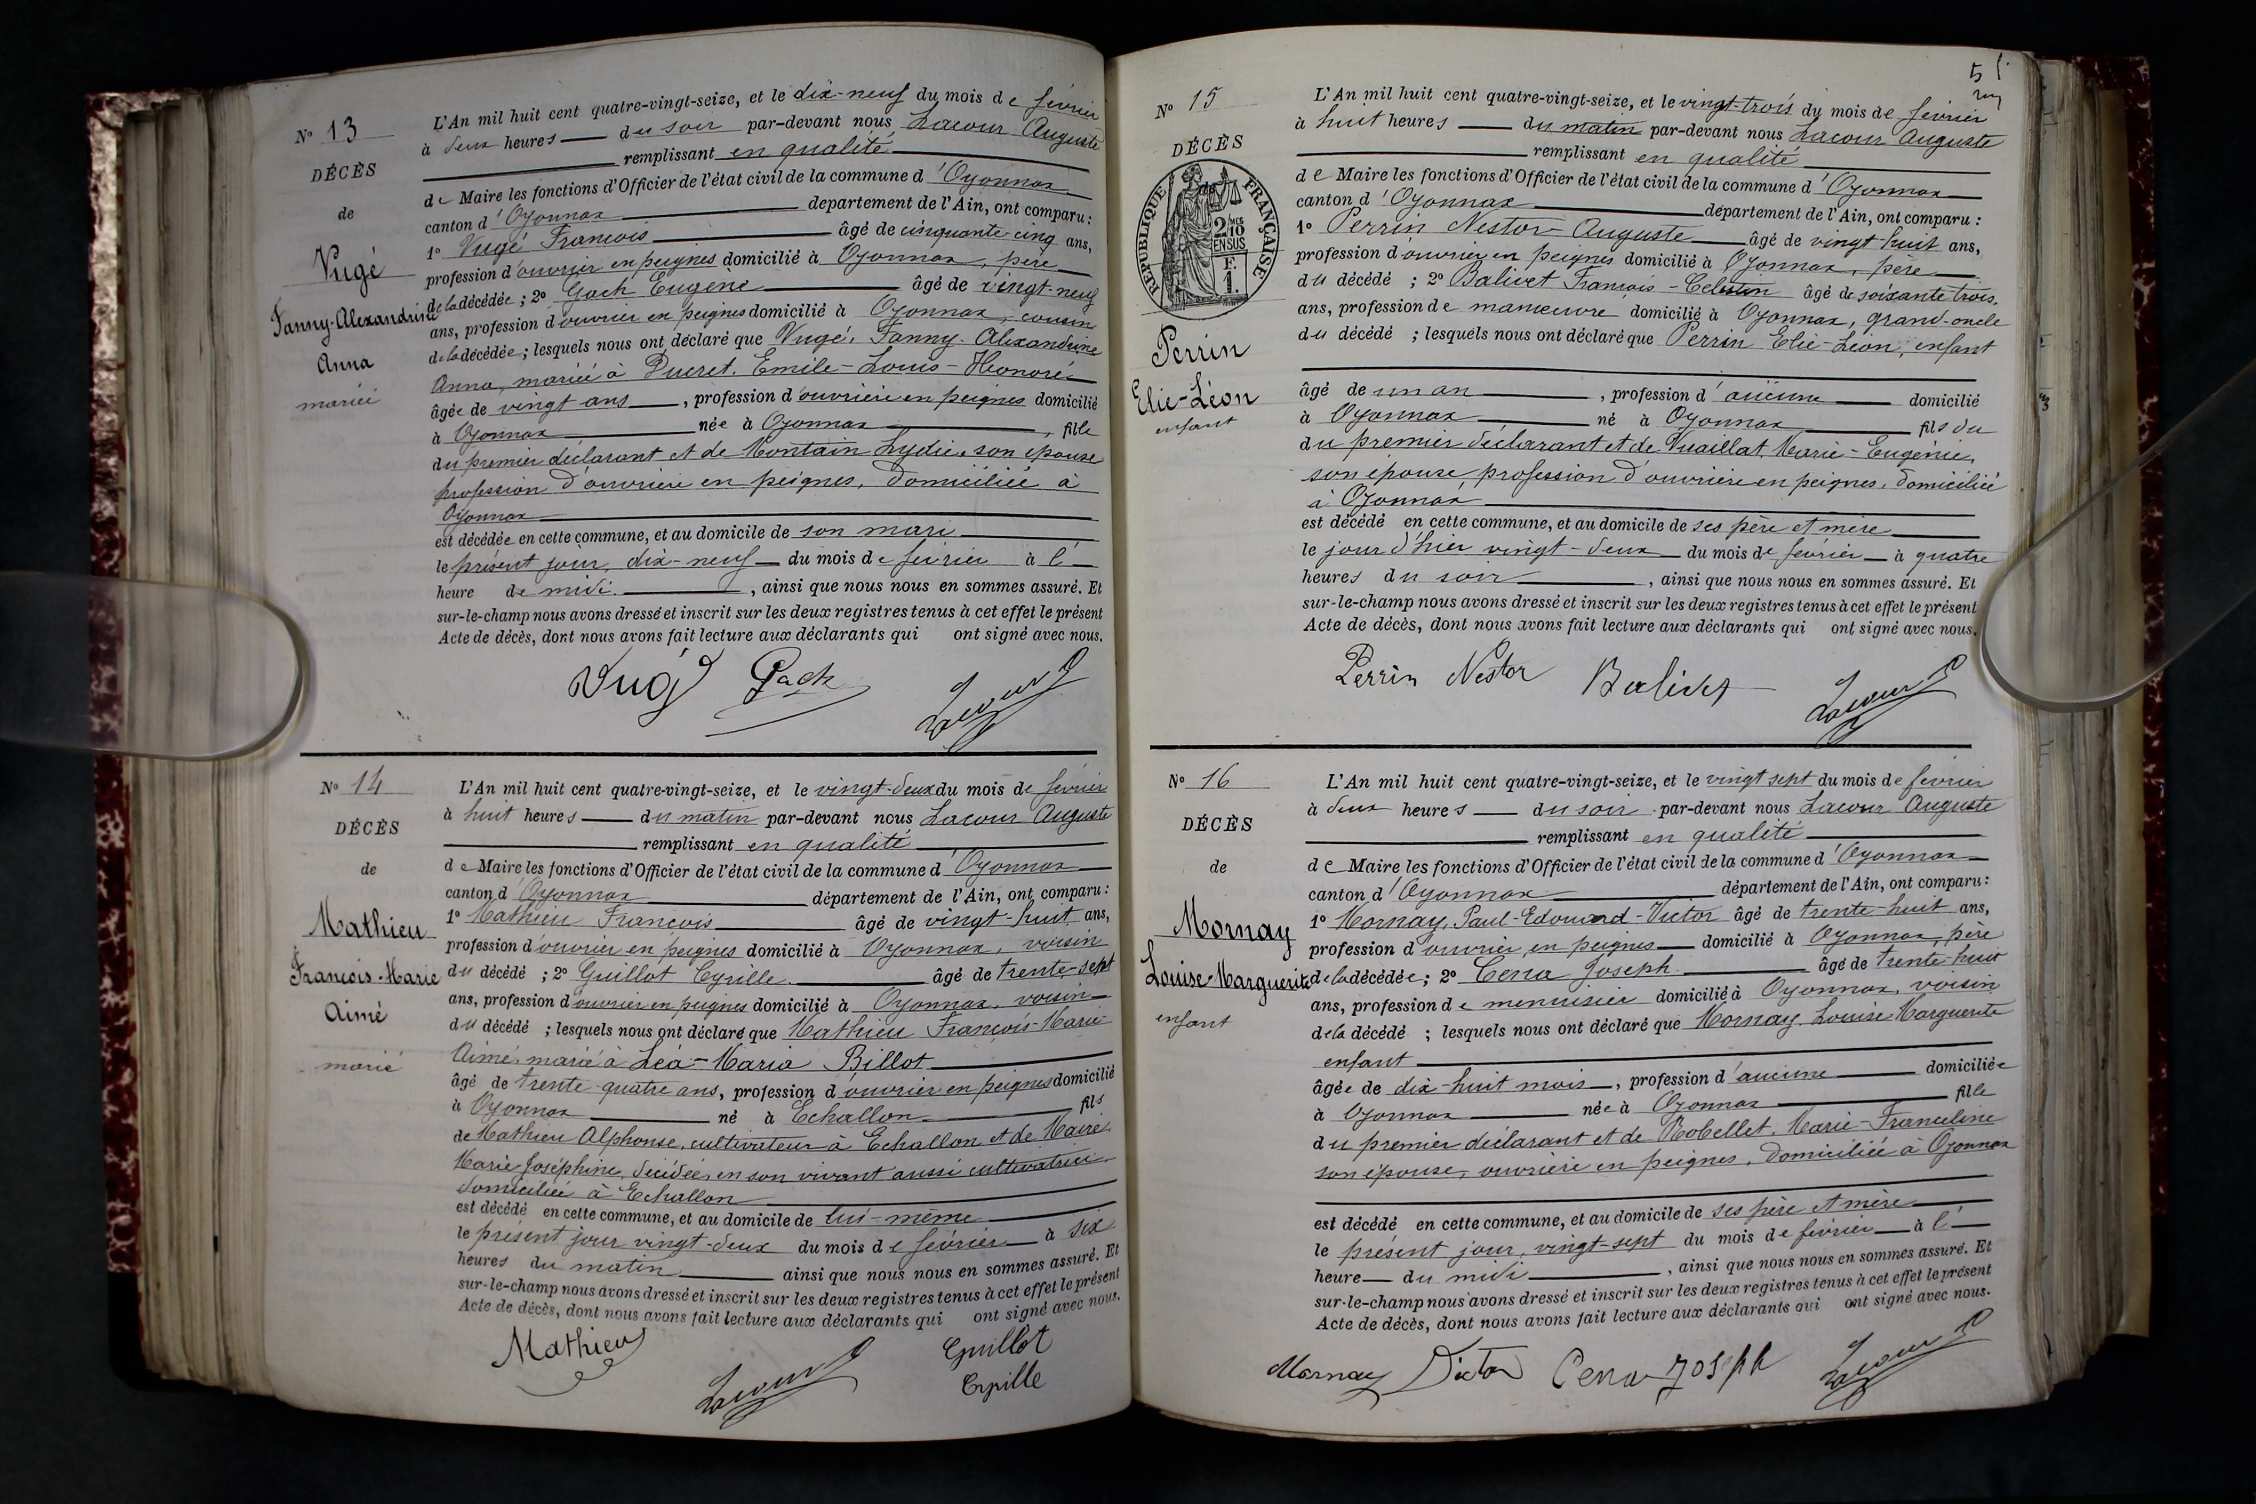 N° 13
DÉCÈS
de
Vugé
Fanny-Alexandrine
Anna
mariée
L'An mil huit cent quatre-vingt-seize, et le dix-neuf du mois de février
à deux heures du soir par-devant nous Lacour Auguste
remplissant en qualité
de Maire les fonctions d'Officier de l'état civil de la commune d'Oyonnax
canton d'Oyonnax département de l'Ain, ont comparu :
1° Vugé François âgé de cinquante-cinq ans,
profession d'ouvrier en peignes domicilié à Oyonnax, père
de la décédée ; 2° Gach Eugène âgé de vingt-neuf
ans, profession d'ouvrier en peignes domicilié à Oyonnax, cousin
de la décédée ; lesquels nous ont déclaré que Vugé, Fanny-Alexandrine
Anna, mariée à Ducret, Emile-Louis-Honoré
âgée de vingt ans, profession d'ouvrière en peignes domicilié
à Oyonnax née à Oyonnax, fille
du premier déclarant et de Montain Lydie, son épouse
profession d'ouvrière en peignes, domiciliée à
Oyonnax
est décédée en cette commune, et au domicile de son mari
le présent jour, dix-neuf du mois de février à l'
heure de midi, ainsi que nous nous en sommes assuré. Et
sur-le-champ nous avons dressé et inscrit sur les deux registres tenus à cet effet le présent
Acte de décès, dont nous avons fait lecture aux déclarants qui ont signé avec nous.
Vugé Gach Lacour
N° 14
DÉCÈS
de
Mathieu
François-Marie
Aimé
marié
L'An mil huit cent quatre-vingt-seize, et le vingt-deux du mois de février
à huit heures du matin par-devant nous Lacour Auguste
remplissant en qualité
de Maire les fonctions d'Officier de l'état civil de la commune d'Oyonnax
canton d'Oyonnax département de l'Ain, ont comparu :
1° Mathieu François âgé de vingt-huit ans,
profession d'ouvrier en peignes domicilié à Oyonnax, voisin
du décédé ; 2° Guillot Cyrille âgé de trente-sept
ans, profession d'ouvrier en peignes domicilié à Oyonnax, voisin
du décédé ; lesquels nous ont déclaré que Mathieu François-Marie
Aimé, marié à Léa-Maria Billot
âgé de trente-quatre ans, profession d'ouvrier en peignes domicilié
à Oyonnax né à Echallon fils
de Mathieu Alphonse, cultivateur à Echallon et de Maire
Marie Joséphine, décédée, en son vivant aussi cultivatrice,
domiciliée à Echallon
est décédé en cette commune, et au domicile de lui-même
le présent jour vingt-deux du mois de février à six
heures du matin ainsi que nous nous en sommes assuré. Et
sur-le-champ nous avons dressé et inscrit sur les deux registres tenus à cet effet le présent
Acte de décès, dont nous avons fait lecture aux déclarants qui ont signé avec nous.
Mathieu Lacour Guillot
Cyrille
N° 15
DÉCÈS
de
RÉPUBLIQUE FRANÇAISE
2/10
EN SUS
F.
1.
Perrin
Elie-Léon
enfant
L'An mil huit cent quatre-vingt-seize, et le vingt-trois du mois de février
à huit heures du matin par-devant nous Lacour Auguste
remplissant en qualité
de Maire les fonctions d'Officier de l'état civil de la commune d'Oyonnax
canton d'Oyonnax département de l'Ain, ont comparu :
1° Perrin Nestor-Auguste âgé de vingt huit ans,
profession d'ouvrier en peignes domicilié à Oyonnax, père
du décédé ; 2° Balivet François-Celestin âgé de soixante-trois
ans, profession de manœuvre domicilié à Oyonnax, grand-oncle
du décédé ; lesquels nous ont déclaré que Perrin Elie-Léon, enfant
âgé de un an, profession d'aucune domicilié
à Oyonnax né à Oyonnax fils du
du premier déclarant et de Vuaillat, Marie-Eugénie,
son épouse, profession d'ouvrière en peignes, domiciliée
à Oyonnax
est décédé en cette commune, et au domicile de ses père et mère
le jour d'hier vingt-deux du mois de février à quatre
heures du soir, ainsi que nous nous en sommes assuré. Et
sur-le-champ nous avons dressé et inscrit sur les deux registres tenus à cet effet le présent
Acte de décès, dont nous avons fait lecture aux déclarants qui ont signé avec nous.
Perrin Nestor Balivet Lacour
N° 16
DÉCÈS
de
Mornay
Louise-Marguerite
enfant
L'An mil huit cent quatre-vingt-seize, et le vingt sept du mois de février
à deux heures du soir par-devant nous Lacour Auguste
remplissant en qualité
de Maire les fonctions d'Officier de l'état civil de la commune d'Oyonnax
canton d'Oyonnax département de l'Ain, ont comparu :
1° Mornay, Paul-Edouard-Victor âgé de trente-huit ans,
profession d'ouvrier en peignes domicilié à Oyonnax, père
de la décédée ; 2° Cena Joseph âgé de trente-huit
ans, profession de menuisier domicilié à Oyonnax, voisin
de la décédé ; lesquels nous ont déclaré que Mornay Louise Marguerite
enfant
âgée de dix-huit mois, profession d'aucune domiciliée
à Oyonnax née à Oyonnax fille
du premier déclarant et de Robellet, Marie-Franceline
son épouse, ouvrière en peignes, domiciliée à Oyonnax
est décédé en cette commune, et au domicile de ses père et mère
le présent jour, vingt-sept du mois de février à l'
heure du midi, ainsi que nous nous en sommes assuré. Et
sur-le-champ nous avons dressé et inscrit sur les deux registres tenus à cet effet le présent
Acte de décès, dont nous avons fait lecture aux déclarants qui ont signé avec nous.
Mornay Victor Cena Joseph Lacour